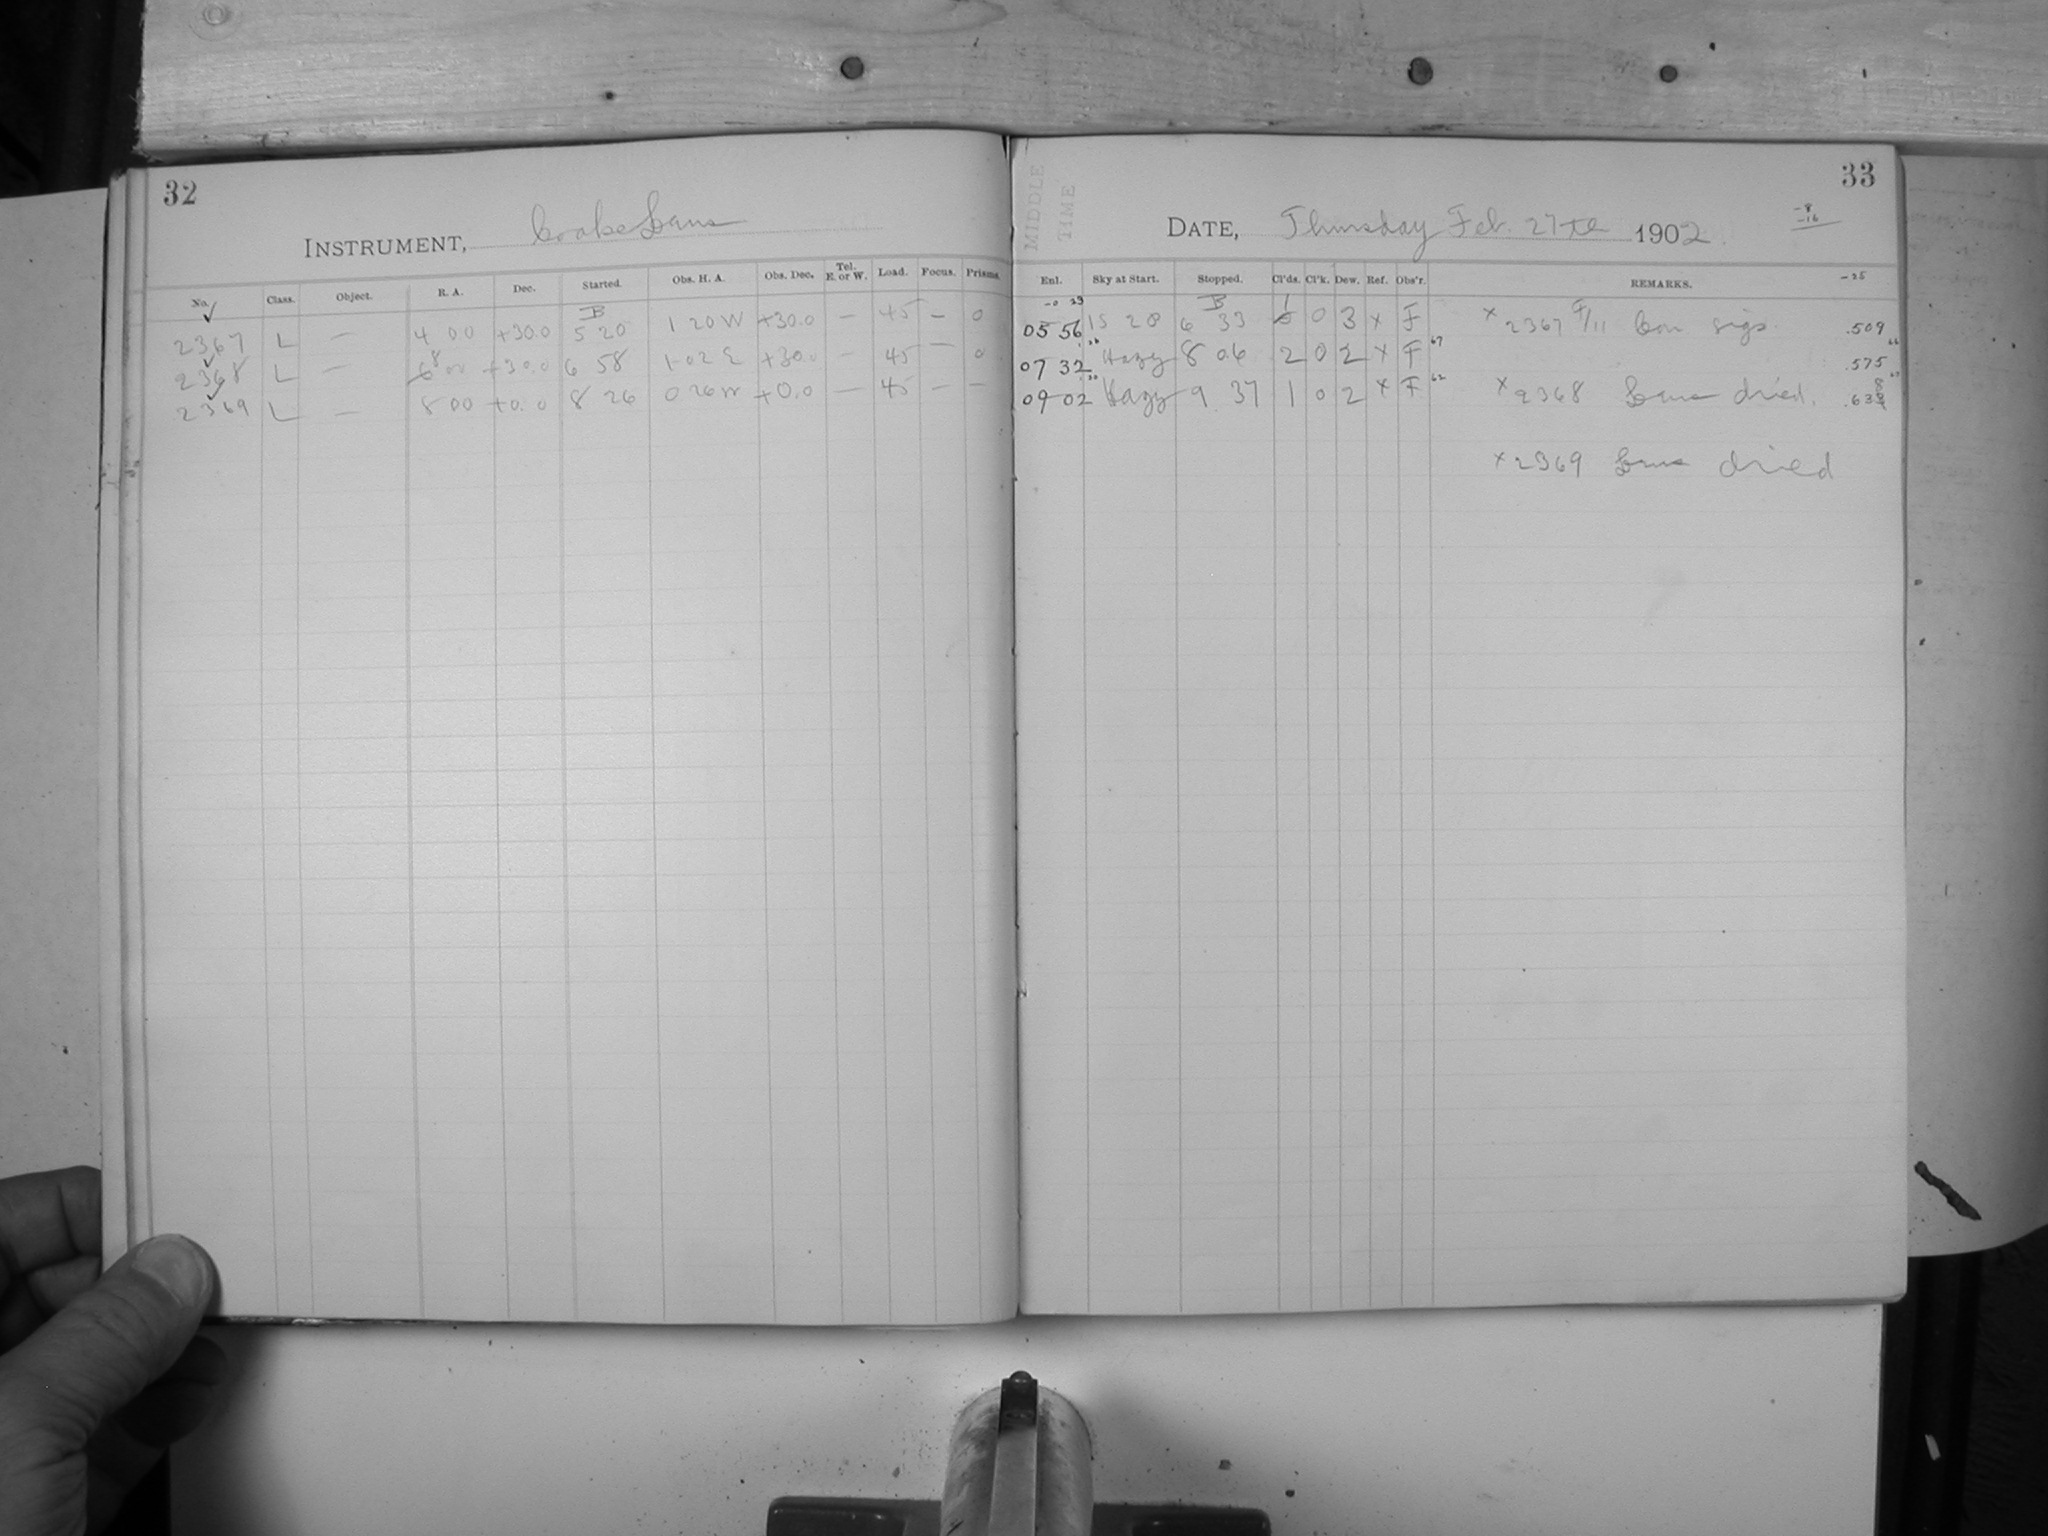 32
INSTRUMENT, Cooke Lens
No. Class. Object. R. A. Dec. Started. Obs. H. A. Obs. Dec. Tel. E. or W. Load. Focus. Prisms.
B
2367 L — 4 00 +30.0 5 20 1 20 W +30.0 — 45 — 0
2368 L — 8 00 +30.0 6 58 1 02 E +30.0 — 45 — 0
2369 L — 8 00 +0.0 8 26 0 26 W +0.0 — 45 — —
33
MIDDLE TIME
DATE, Thursday Feb. 27th 1902.
-8
-16
-25
Enl. Sky at Start. Stopped. Cl'ds. Cl'k. Dew. Ref. Obs'r. REMARKS.
B
05 56 15 28 6 33 1 0 3 x F x 2367 F/11 Con sigs .509
07 32 Hazy 8 06 2 0 2 x F 67 .575
09 02 Hazy 9 37 1 0 2 x F 62 x 2368 Lens dried.
x 2369 Lens dried